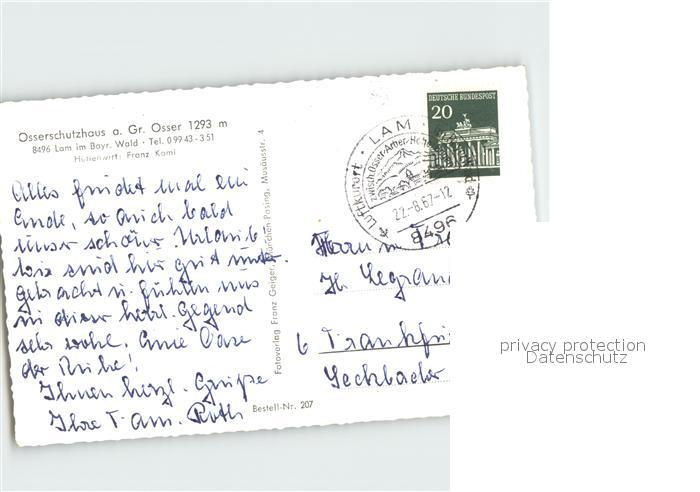 Osserschutzhaus a. Gr. Osser 1293 m
8496 Lam im Bayr. Wald · Tel. 0 99 43 - 3 51
Hüttenwirt: Franz Kaml
Alles findet mal ein
Ende, so auch bald
unser schöner Urlaub!
Wir sind hier gut unter-
gebracht u. fühlen uns
in dieser herrl. Gegend
sehr wohl. Eine Oase
der Ruhe!
Ihnen herzl. Grüße
Ihre Fam. Roth
Fotoverlag Franz Geiger, München-Pasing, Musäusstr. 4
Bestell-Nr. 207
DEUTSCHE BUNDESPOST
20
LAM
Luftkurort
zwisch. Osser-Arber-Ho
22.-8.67-12
8496
Herrn u. Fr
H. Legran
6 Frankfu
Seckbacher
privacy protection
Datenschutz